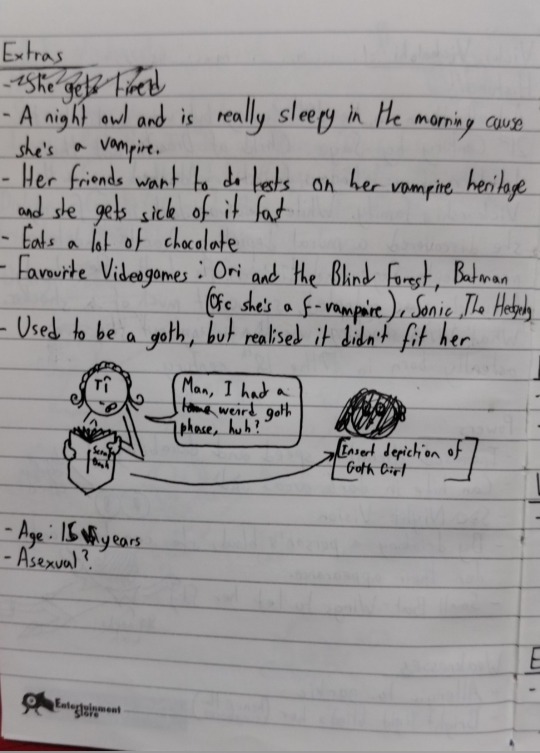 Extras
- She gets tired
- A night owl and is really sleepy in the morning cause
she's a vampire.
- Her friends want to do tests on her vampire heritage
and she gets sick of it fast
- Eats a lot of chocolate
- Favourite Videogames: Ori and the Blind Forest, Batman
(Ofc she's a f-vampire), Sonic The Hedgehog
- Used to be a goth, but realised it didn't fit her
Man, I had a
weird goth
phase, huh?
[Insert depiction of
Goth Girl]
- Age: 15 years
- Asexual?
Entertainment
Store